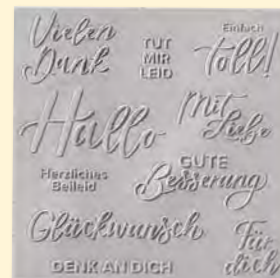 Vielen
Dank
TUT
MIR
LEID
Einfach
toll!
Hallo
Mit
Liebe
Herzliches
Beileid
GUTE
Besserung
Glückwunsch
Für
dich
DENK AN DICH